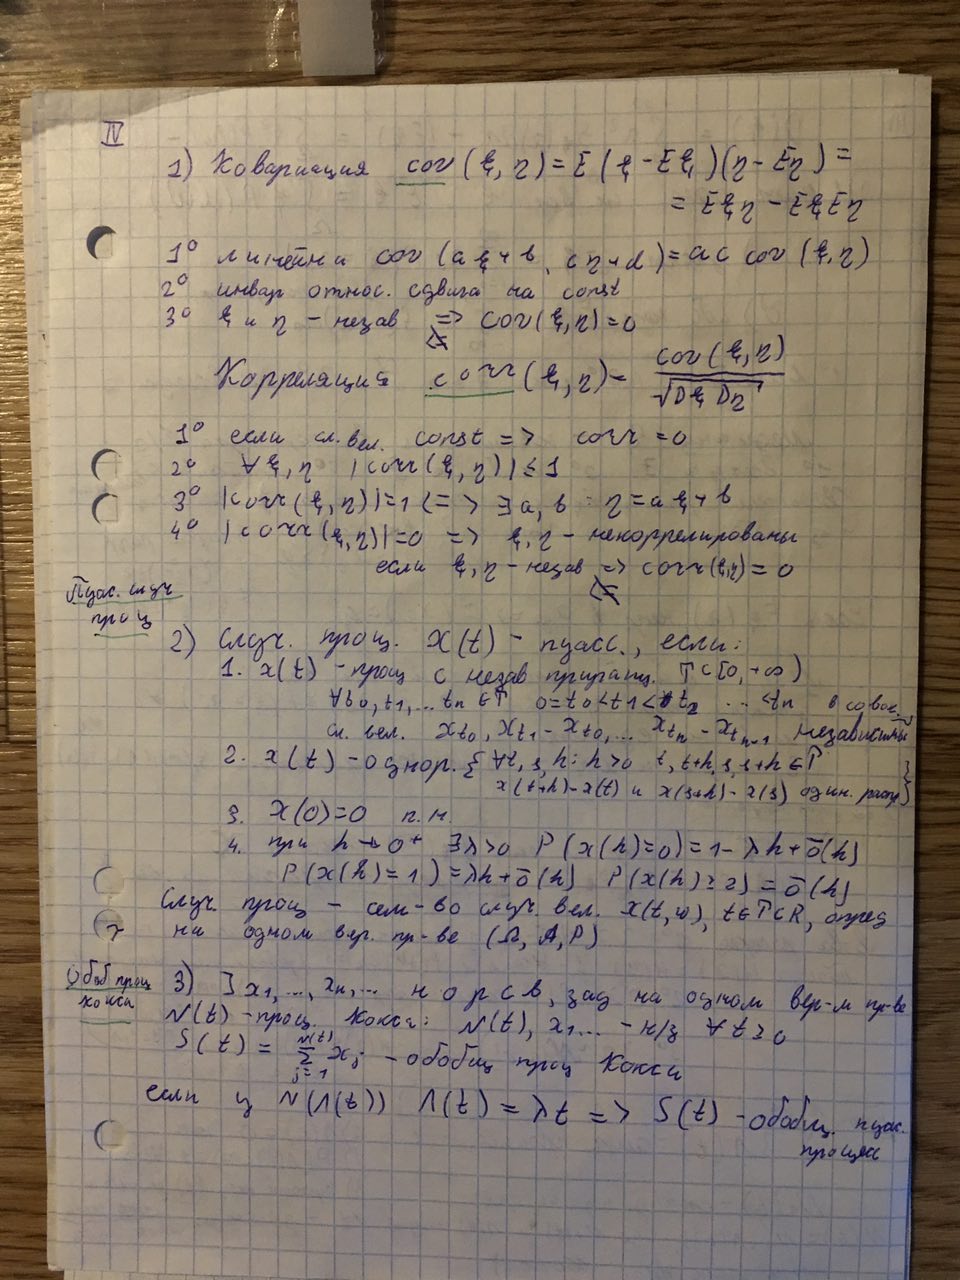 IV
1) Ковариация cov(ξ, η) = E(ξ - Eξ)(η - Eη) =
= Eξη - EξEη
1° линейна cov(aξ+b, cη+d) = ac cov(ξ, η)
2° инвар относ. сдвига на const
3° ξ и η - незав => cov(ξ, η) = 0
<≠
Корреляция corr(ξ, η) = cov(ξ, η) / √(Dξ Dη)
1° если сл. вел. const => corr = 0
2° ∀ξ, η |corr(ξ, η)| ≤ 1
3° |corr(ξ, η)| = 1 <=> ∃a, b : η = aξ + b
4° |corr(ξ, η)| = 0 => ξ, η - некоррелированы
если ξ, η - незав => corr(ξ, η) = 0
<≠
Пуас. случ
проц
2) Случ. проц. X(t) - пуасс., если:
1. x(t) - проц с незав приращ. T⊂[0, +∞)
∀t0, t1, ... tn ∈ T 0 = t0 < t1 < t2 ... < tn в совок.
сл. вел. Xt0, Xt1 - Xt0, ... Xtn - Xtn-1 независимы
2. x(t) - однор. {∀t, s, h: h>0 t, t+h, s, s+h ∈ T
x(t+h) - x(t) и x(s+h) - x(s) один. распр}
3. x(0) = 0 п.н.
4. при h → 0+ ∃λ>0 P(x(h)=0) = 1 - λh + ō(h)
P(x(h)=1) = λh + ō(h) P(x(h) ≥ 2) = ō(h)
Случ. проц - сем-во случ. вел. X(t, ω), t∈T⊂R, опред
на одном вер. пр-ве (Ω, A, P)
Обоб проц
кокса
3) ] x1, ..., xn, ... н о р с в, зад на одном вер-м пр-ве
N(t) - проц. Кокса: N(t), x1... - н/з ∀t ≥ 0
S(t) = Σ_{j=1}^{N(t)} xj - обобщ проц Кокса
если ц N(Λ(t)) Λ(t) = λt => S(t) - обобщ. пуас.
процесс